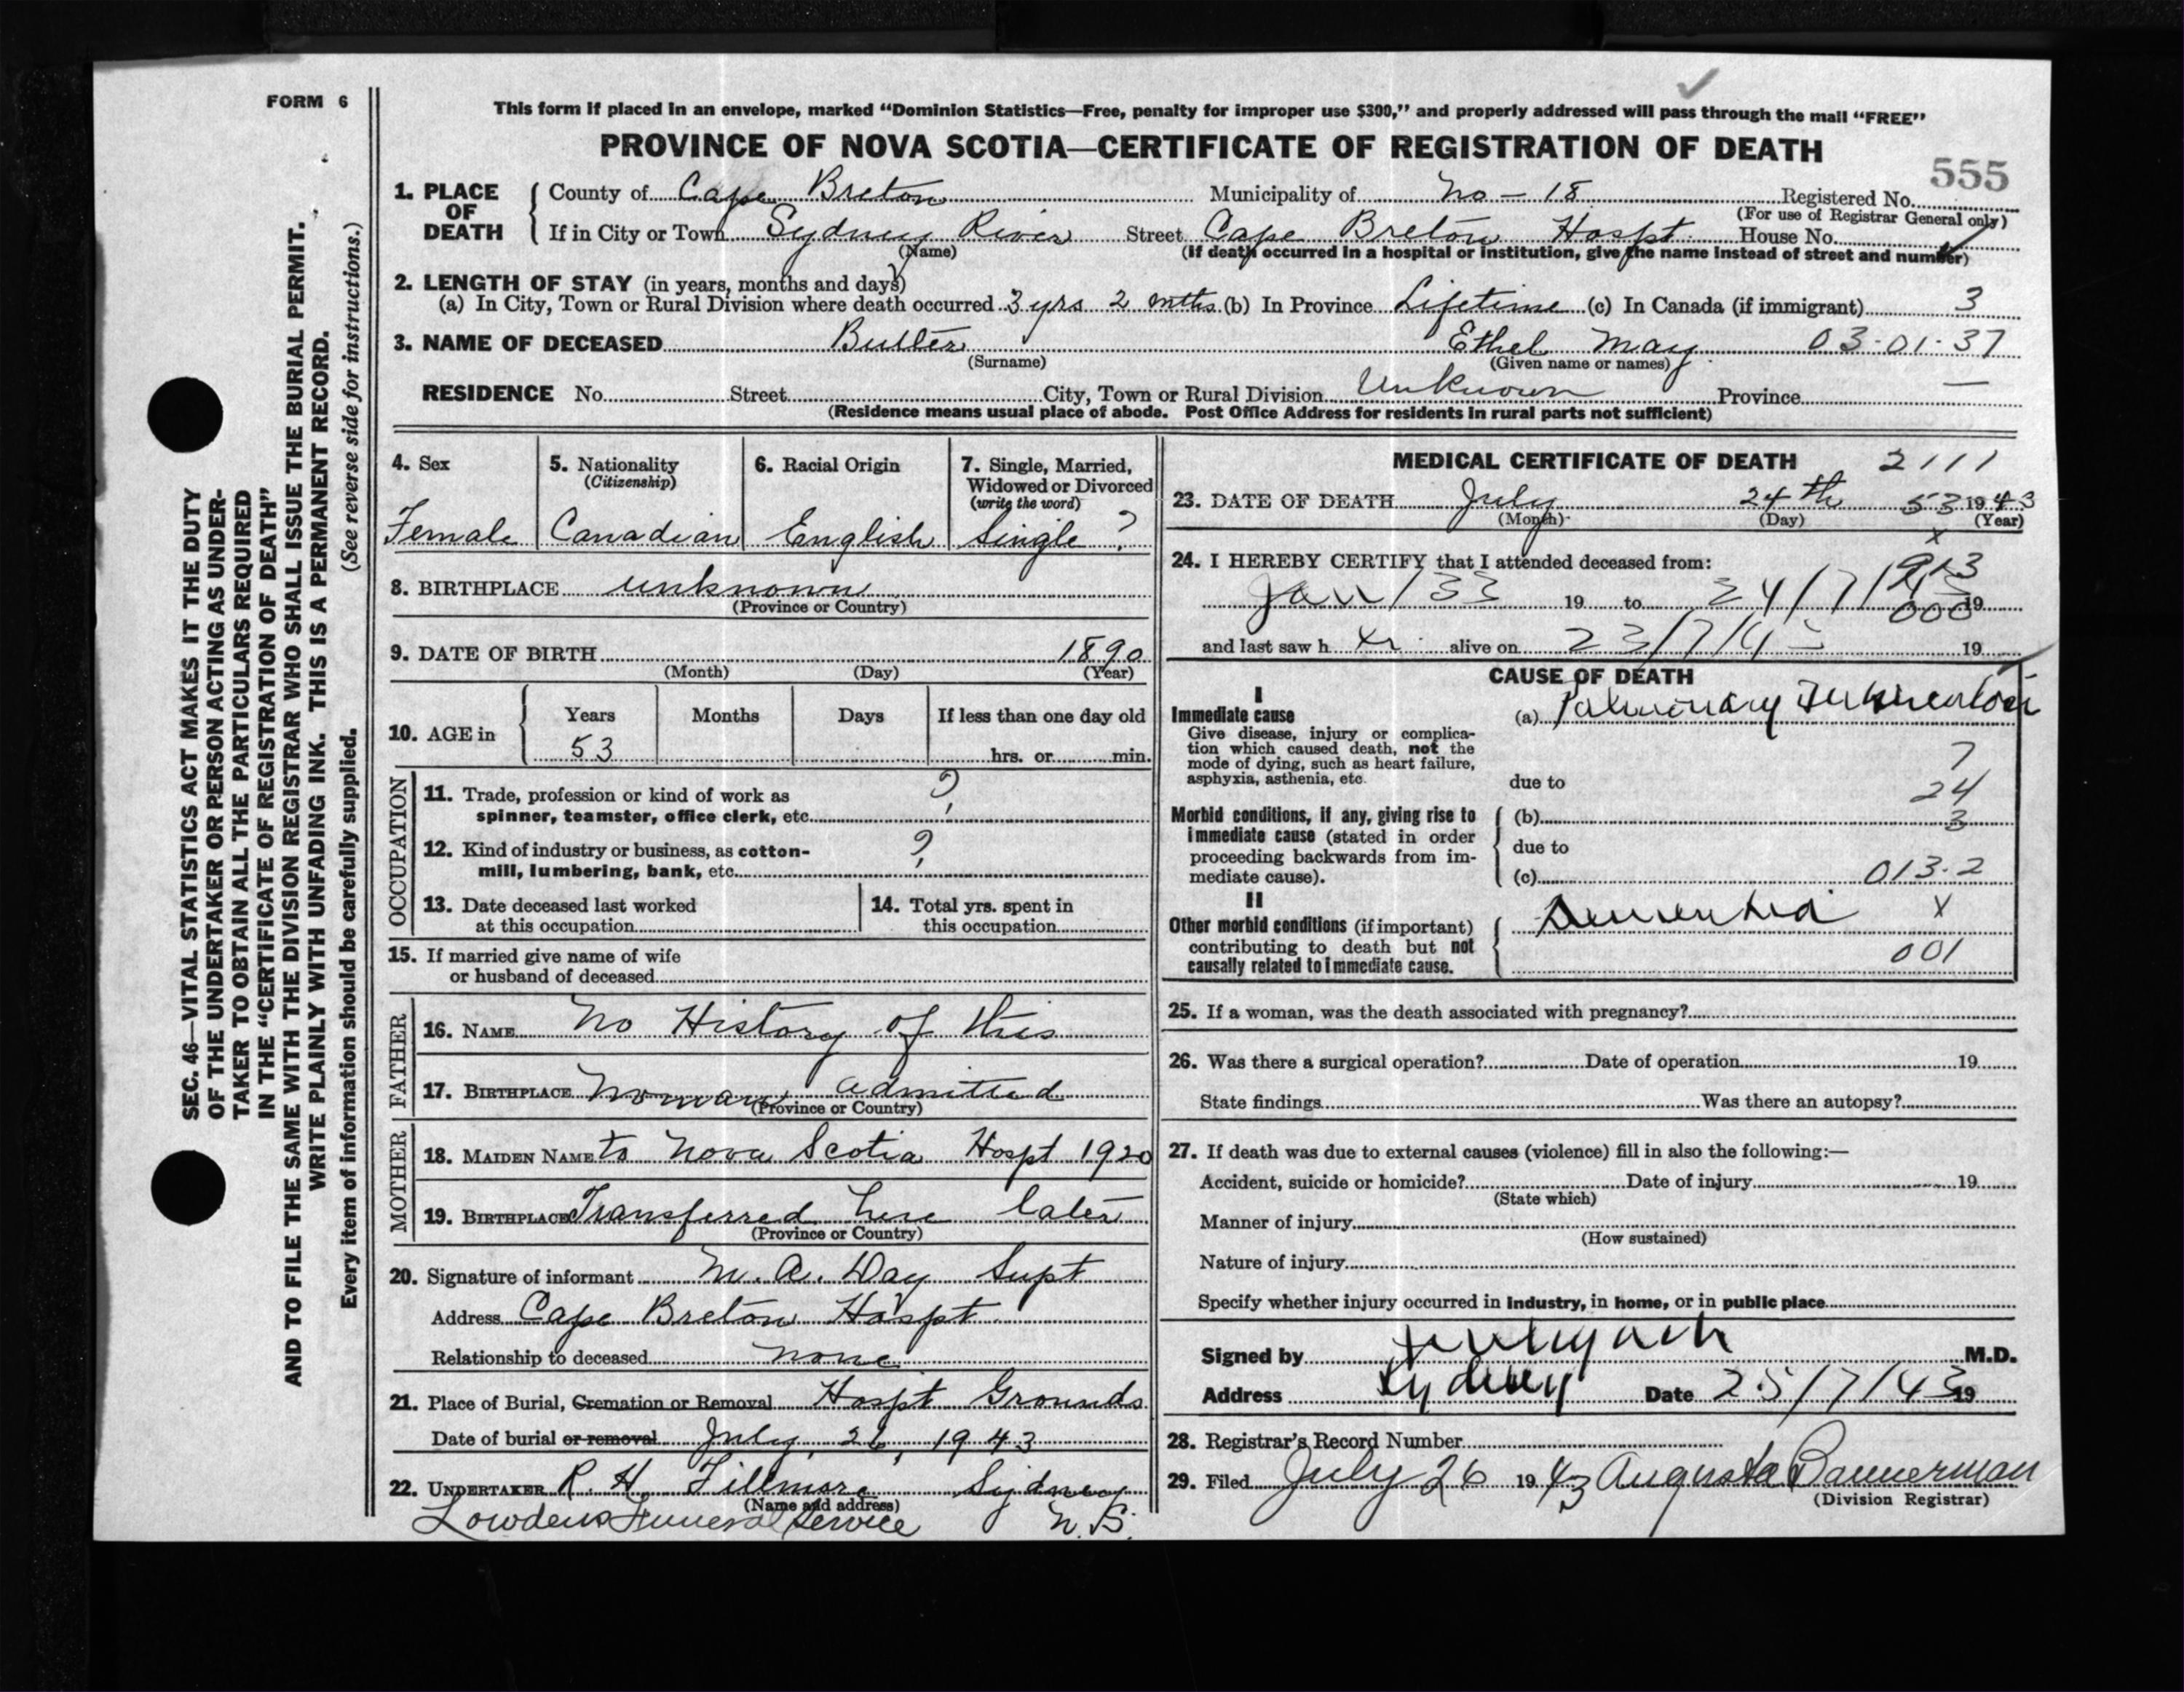 FORM 6
SEC. 46—VITAL STATISTICS ACT MAKES IT THE DUTY
OF THE UNDERTAKER OR PERSON ACTING AS UNDER-
TAKER TO OBTAIN ALL THE PARTICULARS REQUIRED
IN THE "CERTIFICATE OF REGISTRATION OF DEATH"
AND TO FILE THE SAME WITH THE DIVISION REGISTRAR WHO SHALL ISSUE THE BURIAL PERMIT.
WRITE PLAINLY WITH UNFADING INK. THIS IS A PERMANENT RECORD.
Every item of information should be carefully supplied. (See reverse side for instructions.)
This form if placed in an envelope, marked "Dominion Statistics—Free, penalty for improper use $300," and properly addressed will pass through the mail "FREE"
PROVINCE OF NOVA SCOTIA—CERTIFICATE OF REGISTRATION OF DEATH
555
1. PLACE OF DEATH County of Cape Breton Municipality of No - 18 Registered No.
(For use of Registrar General only)
If in City or Town Sydney River Street Cape Breton Hospt House No.
(Name) (If death occurred in a hospital or institution, give the name instead of street and number)
2. LENGTH OF STAY (in years, months and days)
(a) In City, Town or Rural Division where death occurred 3 yrs 2 mths (b) In Province Lifetime (c) In Canada (if immigrant) 3
3. NAME OF DECEASED Butler Ethel May 03-01-37
(Surname) (Given name or names)
RESIDENCE No. Street City, Town or Rural Division Unknown Province —
(Residence means usual place of abode. Post Office Address for residents in rural parts not sufficient)
4. Sex
Female
5. Nationality
(Citizenship)
Canadian
6. Racial Origin
English
7. Single, Married,
Widowed or Divorced
(write the word)
Single ?
8. BIRTHPLACE unknown
(Province or Country)
9. DATE OF BIRTH 1890
(Month) (Day) (Year)
10. AGE in Years Months Days If less than one day old
53 hrs. or min.
OCCUPATION
11. Trade, profession or kind of work as
spinner, teamster, office clerk, etc. ?
12. Kind of industry or business, as cotton-
mill, lumbering, bank, etc. ?
13. Date deceased last worked
at this occupation
14. Total yrs. spent in
this occupation
15. If married give name of wife
or husband of deceased
FATHER
16. NAME No History of this
17. BIRTHPLACE Woman admitted
(Province or Country)
MOTHER
18. MAIDEN NAME to Nova Scotia Hospt 1920
19. BIRTHPLACE Transferred here later
(Province or Country)
20. Signature of informant M. A. Day Supt
Address Cape Breton Hospt
Relationship to deceased none
21. Place of Burial, Cremation or Removal Hospt Grounds
Date of burial or removal July, 26, 1943
22. UNDERTAKER R. H. Fillmore Sydney
(Name and address)
Lowdens Funeral Service N.S.
MEDICAL CERTIFICATE OF DEATH 2111
23. DATE OF DEATH July 24th 53 1943
(Month) (Day) (Year)
x
24. I HEREBY CERTIFY that I attended deceased from:
Jan/33 19 to 24/7/ 19
000
and last saw h er alive on 23/7/43 19
CAUSE OF DEATH
I
Immediate cause
Give disease, injury or complica-
tion which caused death, not the
mode of dying, such as heart failure,
asphyxia, asthenia, etc.
(a) Pulmonary Tuberculosis
7
due to
24
Morbid conditions, if any, giving rise to
immediate cause (stated in order
proceeding backwards from im-
mediate cause).
(b) 3
due to
(c) 013.2
II
Other morbid conditions (if important)
contributing to death but not
causally related to immediate cause.
Dementia X
001
25. If a woman, was the death associated with pregnancy?
26. Was there a surgical operation? Date of operation 19
State findings Was there an autopsy?
27. If death was due to external causes (violence) fill in also the following:—
Accident, suicide or homicide? Date of injury 19
(State which)
Manner of injury
(How sustained)
Nature of injury
Specify whether injury occurred in industry, in home, or in public place
Signed by M.D.
Address Sydney Date 25/7/43 19
28. Registrar's Record Number
29. Filed July 26 1943 Augusta Bannerman
(Division Registrar)